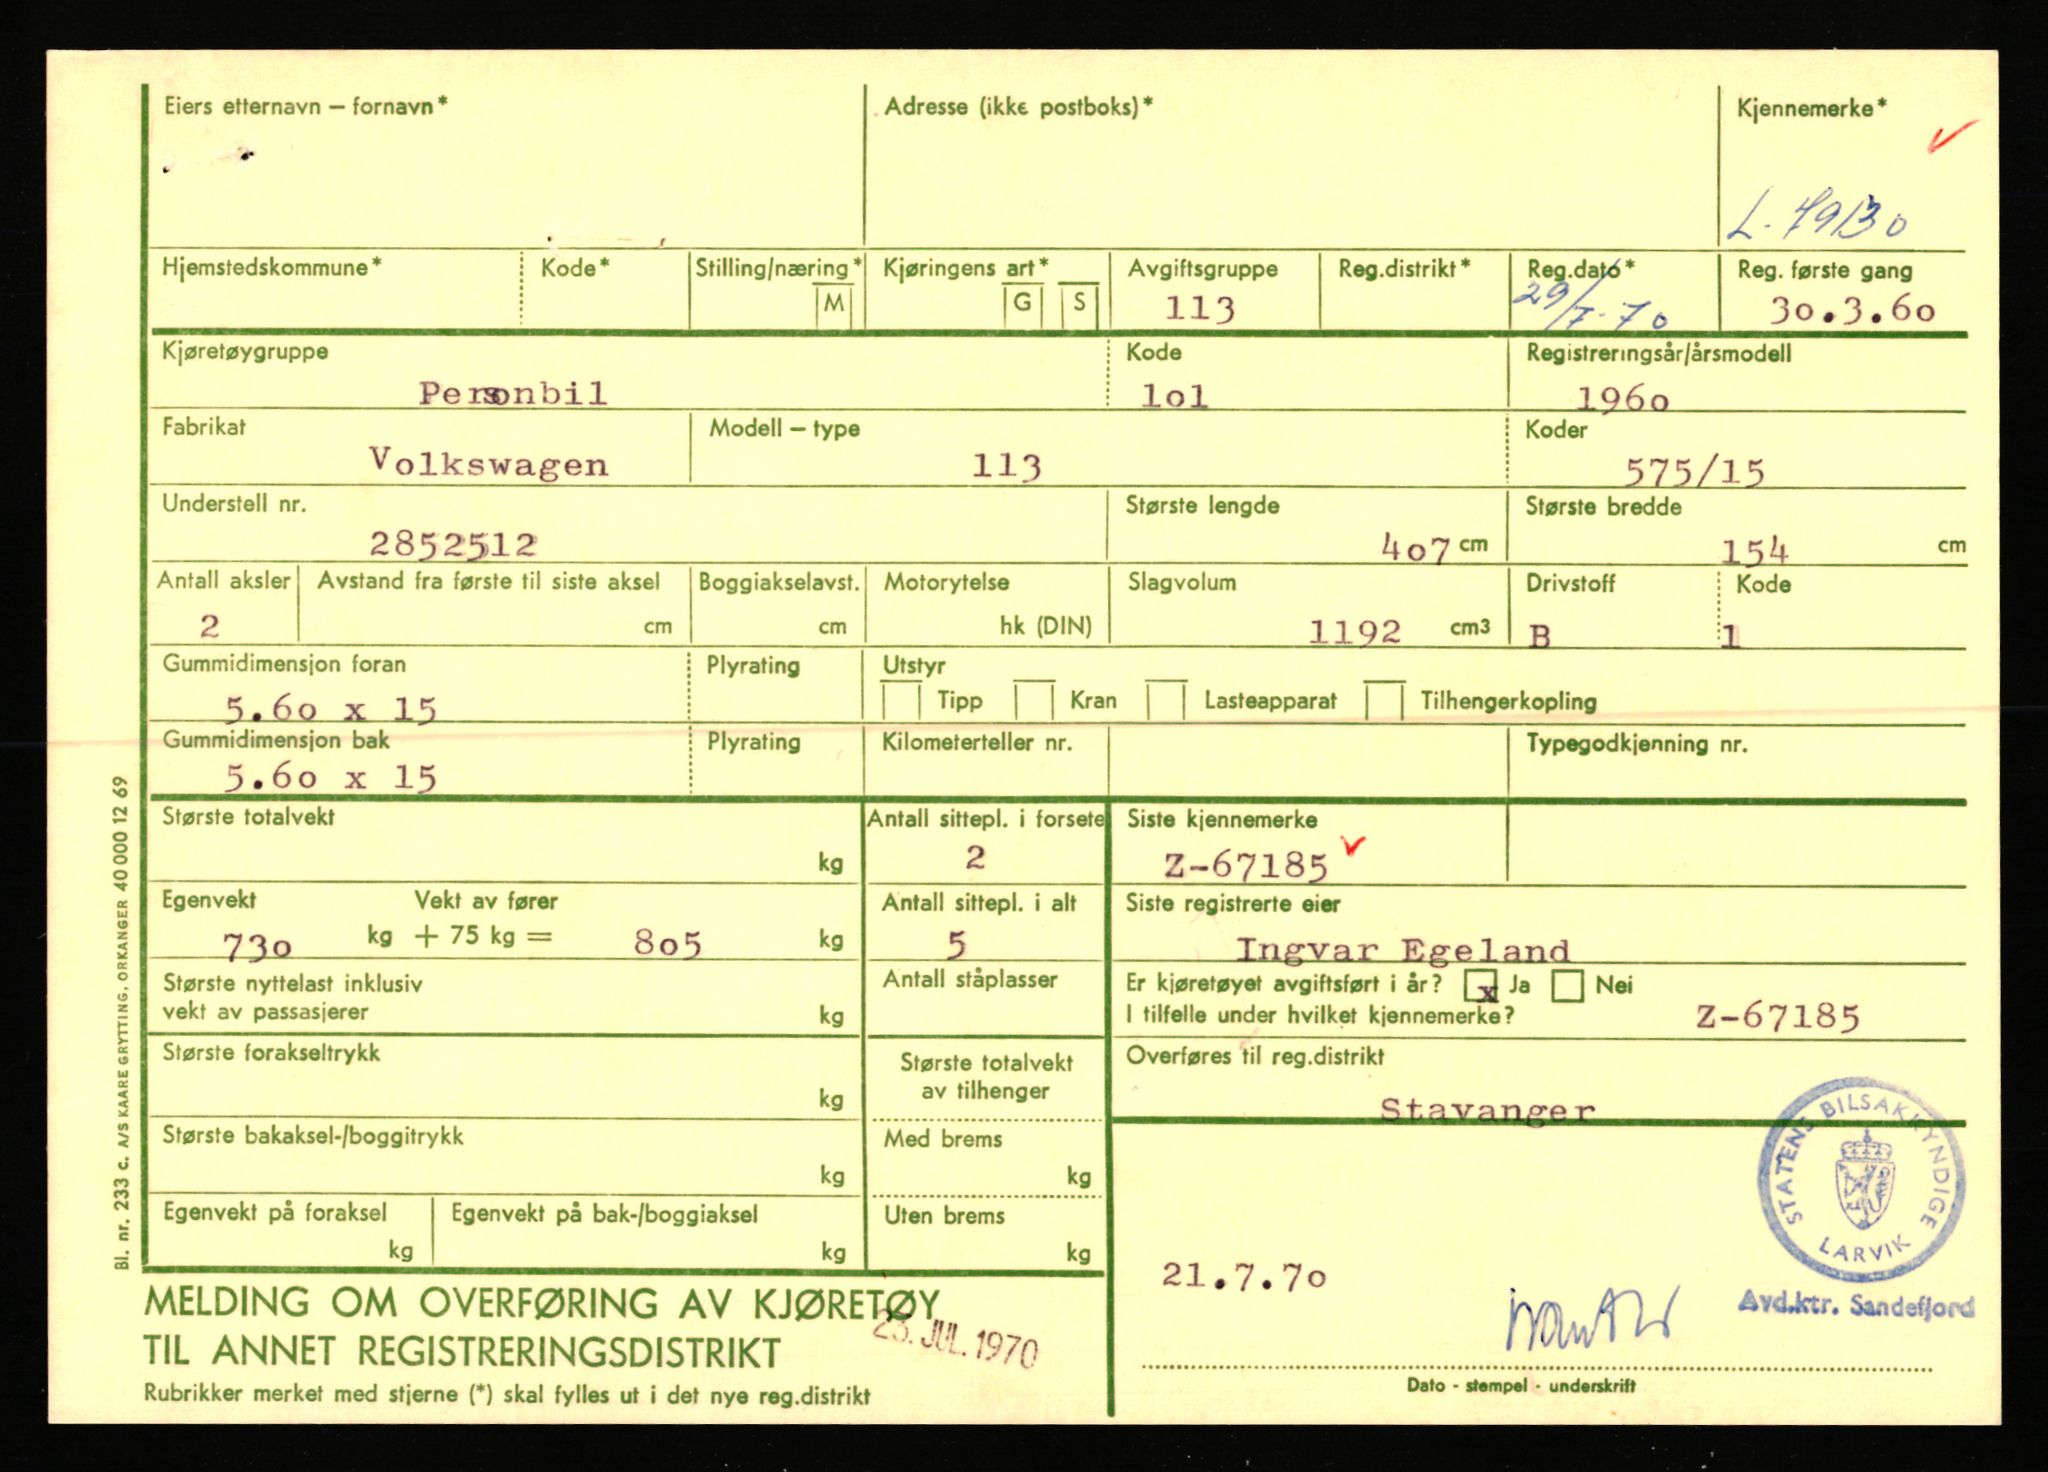 Eiers etternavn – fornavn*
Adresse (ikke postboks)*
Kjennemerke*
Hjemstedskommune*
Kode*
Stilling/næring*
M
Kjøringens art*
G
S
Avgiftsgruppe
113
Reg.distrikt*
Reg.dato*
Reg. første gang
30.3.60
Kjøretøygruppe
Personbil
Kode
101
Registreringsår/årsmodell
1960
Fabrikat
Volkswagen
Modell – type
113
Koder
575/15
Understell nr.
2852512
Største lengde
407 cm
Største bredde
154 cm
Antall aksler
2
Avstand fra første til siste aksel
cm
Boggiakselavst.
cm
Motorytelse
hk (DIN)
Slagvolum
1192 cm3
Drivstoff
B
Kode
1
Gummidimensjon foran
5.60 x 15
Plyrating
Utstyr
Tipp
Kran
Lasteapparat
Tilhengerkopling
Gummidimensjon bak
5.60 x 15
Plyrating
Kilometerteller nr.
Typegodkjenning nr.
Største totalvekt
kg
Antall sittepl. i forsete
2
Siste kjennemerke
Z-67185
Egenvekt
Vekt av fører
730 kg + 75 kg = 805 kg
Antall sittepl. i alt
5
Siste registrerte eier
Ingvar Egeland
Største nyttelast inklusiv
vekt av passasjerer
kg
Antall ståplasser
Er kjøretøyet avgiftsført i år? x Ja Nei
I tilfelle under hvilket kjennemerke? Z-67185
Største forakseltrykk
kg
Største totalvekt
av tilhenger
Overføres til reg.distrikt
Stavanger
Største bakaksel-/boggitrykk
kg
Med brems
kg
Egenvekt på foraksel
kg
Egenvekt på bak-/boggiaksel
kg
Uten brems
kg
STATENS BILSAKKYNDIGE
LARVIK
21.7.70
Avd.ktr. Sandefjord
Dato - stempel - underskrift
MELDING OM OVERFØRING AV KJØRETØY
TIL ANNET REGISTRERINGSDISTRIKT
23. JUL. 1970
Rubrikker merket med stjerne (*) skal fylles ut i det nye reg.distrikt
Bl. nr. 233 c. A/S KAARE GRYTTING, ORKANGER 40 000 12 69